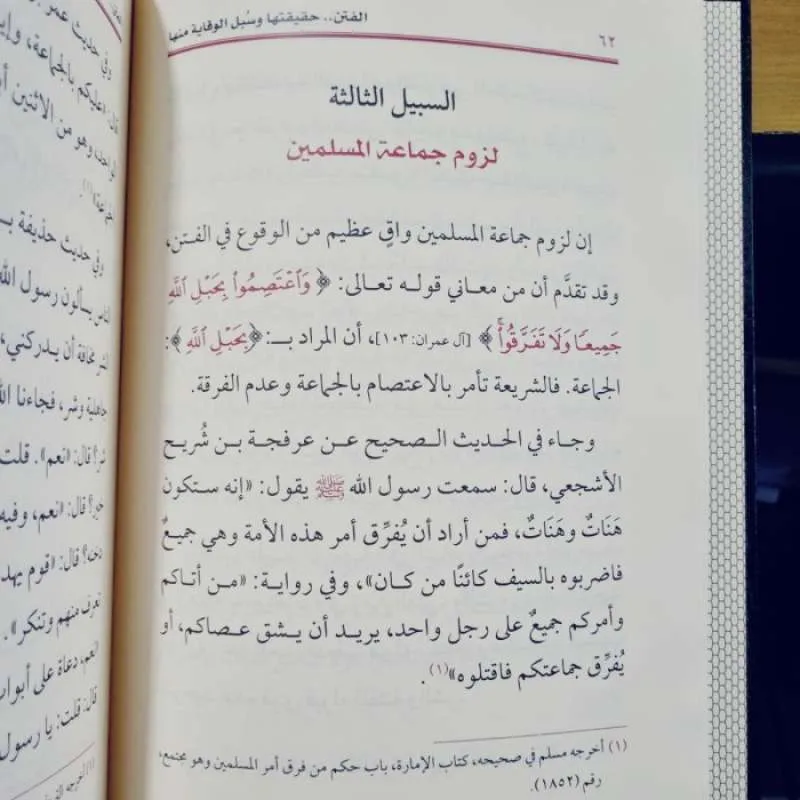 الفتن.. حقيقتها وسُبل الوقاية منها
٦٢
السبيل الثالثة
لزوم جماعة المسلمين
إن لزوم جماعة المسلمين واقٍ عظيم من الوقوع في الفتن،
وقد تقدَّم أن من معاني قوله تعالى: ﴿وَٱعْتَصِمُوا۟ بِحَبْلِ ٱللَّهِ
جَمِيعًا وَلَا تَفَرَّقُوا۟ۚ﴾ [آل عمران: ١٠٣]، أن المراد بـ: ﴿بِحَبْلِ ٱللَّهِ﴾:
الجماعة. فالشريعة تأمر بالاعتصام بالجماعة وعدم الفرقة.
وجاء في الحديث الصحيح عن عرفجة بن شُريح
الأشجعي، قال: سمعت رسول الله ﷺ يقول: «إنه ستكون
هَنَاتٌ وهَنَاتٌ، فمن أراد أن يُفرِّق أمر هذه الأمة وهي جميعٌ
فاضربوه بالسيف كائنًا من كان»، وفي رواية: «من أتاكم
وأمركم جميعٌ على رجل واحد، يريد أن يشق عصاكم، أو
يُفرِّق جماعتكم فاقتلوه»(١).
(١) أخرجه مسلم في صحيحه، كتاب الإمارة، باب حكم من فرق أمر المسلمين وهو مجتمع،
رقم (١٨٥٢).
وفي حديث عمر
عليكم بالجماعة،
وهو من الاثنين
وفي حديث حذيفة
الناس يسألون رسول الله
مخافة أن يدركني،
جاهلية وشر، فجاءنا
قال: «نعم». قلت
قال: «نعم، وفيه
قال: «قوم
تعرف منهم وتنكر».
نعم، دعاة على
قال: قلت: يا رسول